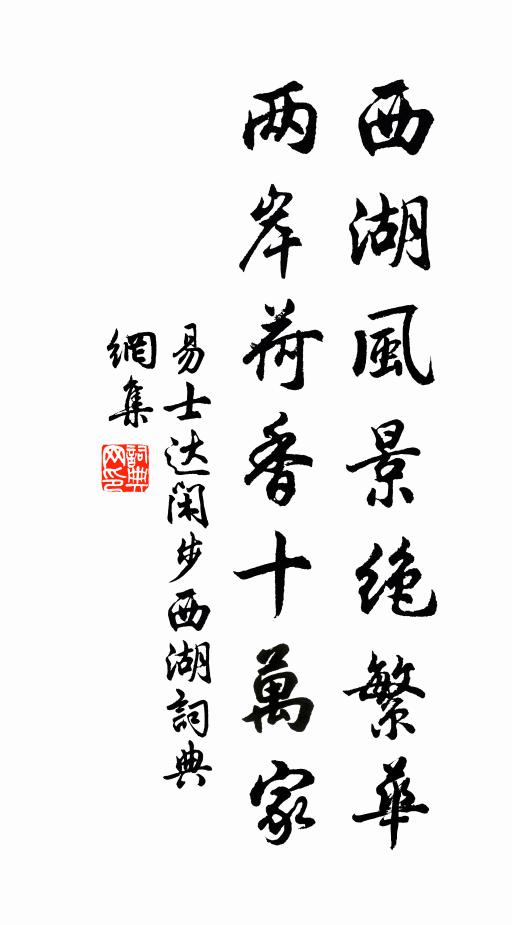 西湖風景絶繁華
两岸荷香十萬家
易士达闲步西湖詞典
網集
詞典
网印